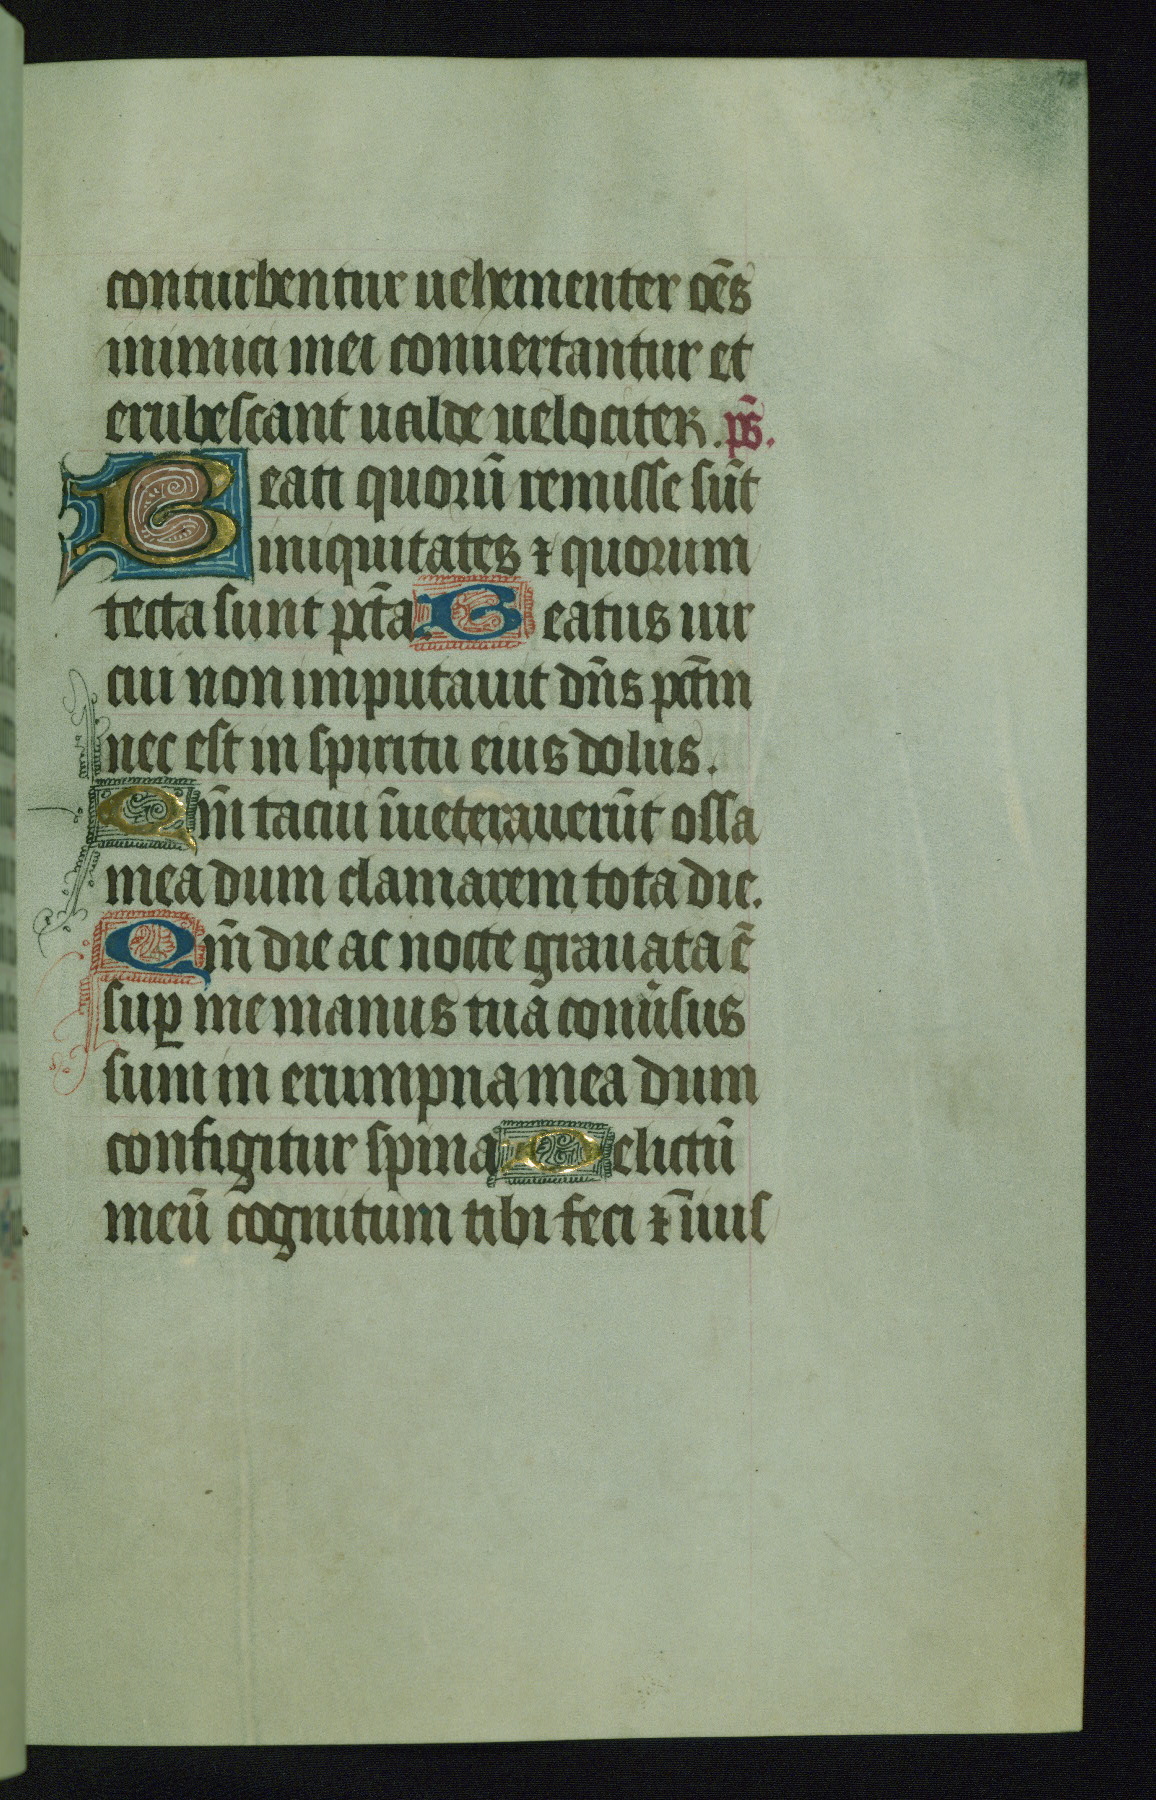 78
conturbentur uehementer oēs
inimici mei conuertantur et
erubescant ualde uelociter. pś.
Beati quorū remisse sūt
iniquitates ⁊ quorum
tecta sunt pctā. Beatus uir
cui non imputauit dn̄s pctm̄
nec est in spiritu eius dolus.
Qm̄ tacui īueterauerūt ossa
mea dum clamarem tota die.
Qm̄ die ac nocte grauata ē
suꝑ me manus tua conūsus
sum in erumpna mea dum
configitur spina Delictū
meū cognitum tibi feci ⁊ īius